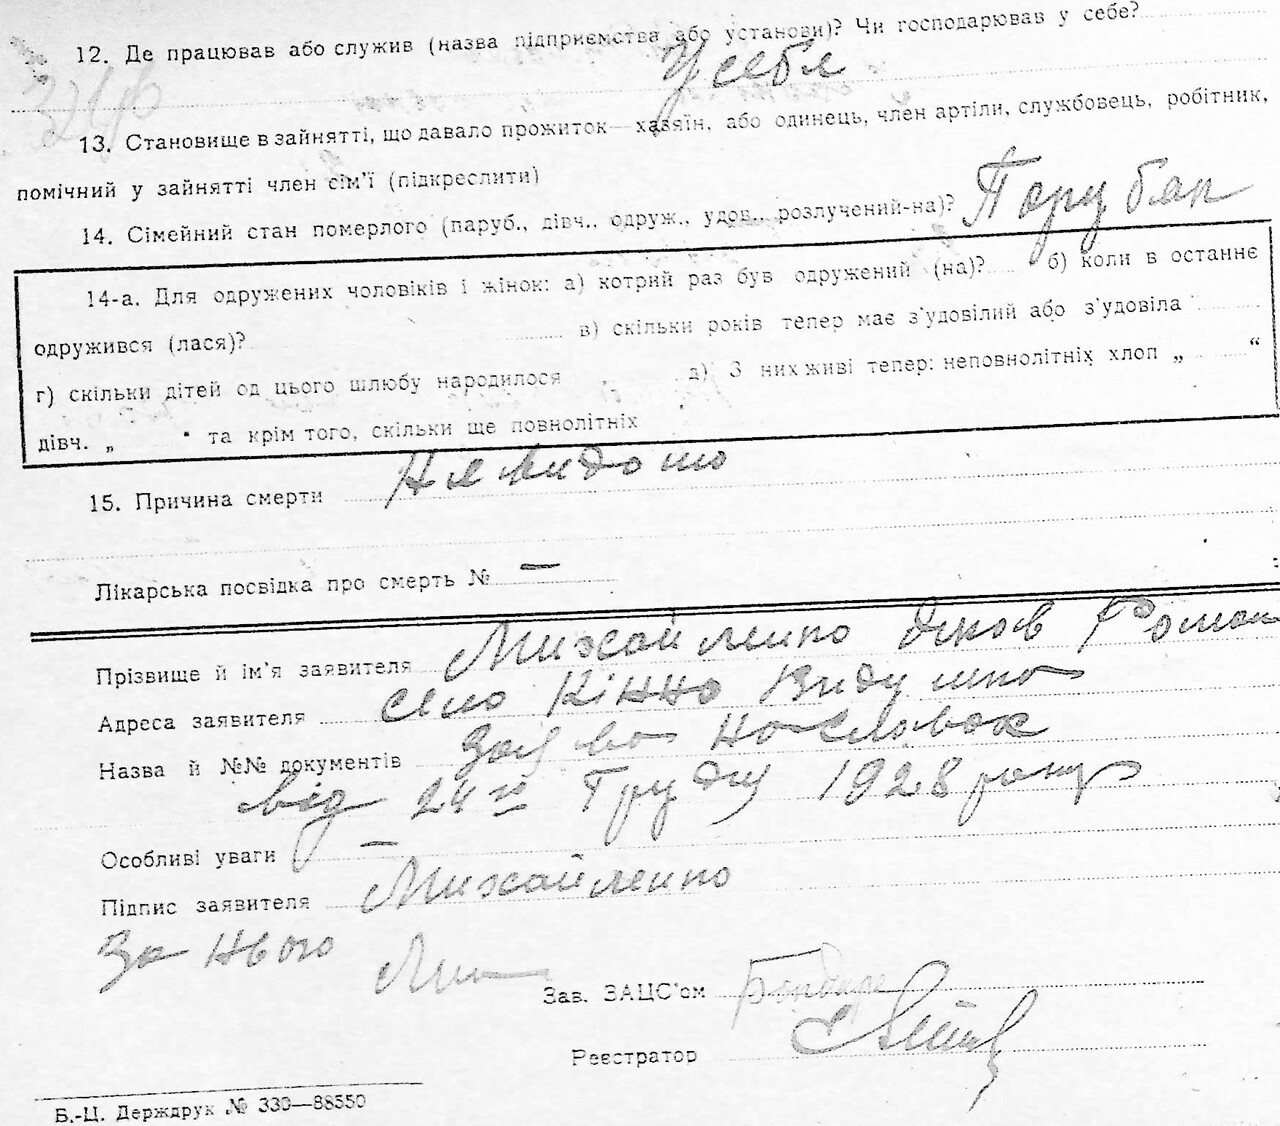 12. Де працював або служив (назва підприємства або установи)? Чи господарював у себе?
У себе
13. Становище в зайнятті, що давало прожиток — хазяїн, або одинець, член артіли, службовець, робітник,
помічний у зайнятті член сім'ї (підкреслити)
14. Сімейний стан померлого (паруб., дівч., одруж., удов., розлучений-на)? Парубак
14-а. Для одружених чоловіків і жінок: а) котрий раз був одружений (на)? б) коли в останнє
одружився (лася)? в) скільки років тепер має з'удовілий або з'удовіла
г) скільки дітей од цього шлюбу народилося д) З них живі тепер: неповнолітніх хлоп „ “
дівч. „ “ та крім того, скільки ще повнолітніх
15. Причина смерти Не видомо
Лікарська посвідка про смерть № —
Прізвище й ім'я заявителя Михайленко Яков Роман
Адреса заявителя село
Назва й №№ документів Заява на словах
від 24го Грудня 1928 року
Особливі уваги —
Підпис заявителя Михайленко
За нього
Зав. ЗАЦС'ом
Реєстратор
Б.-Ц. Держдрук № 330—88550